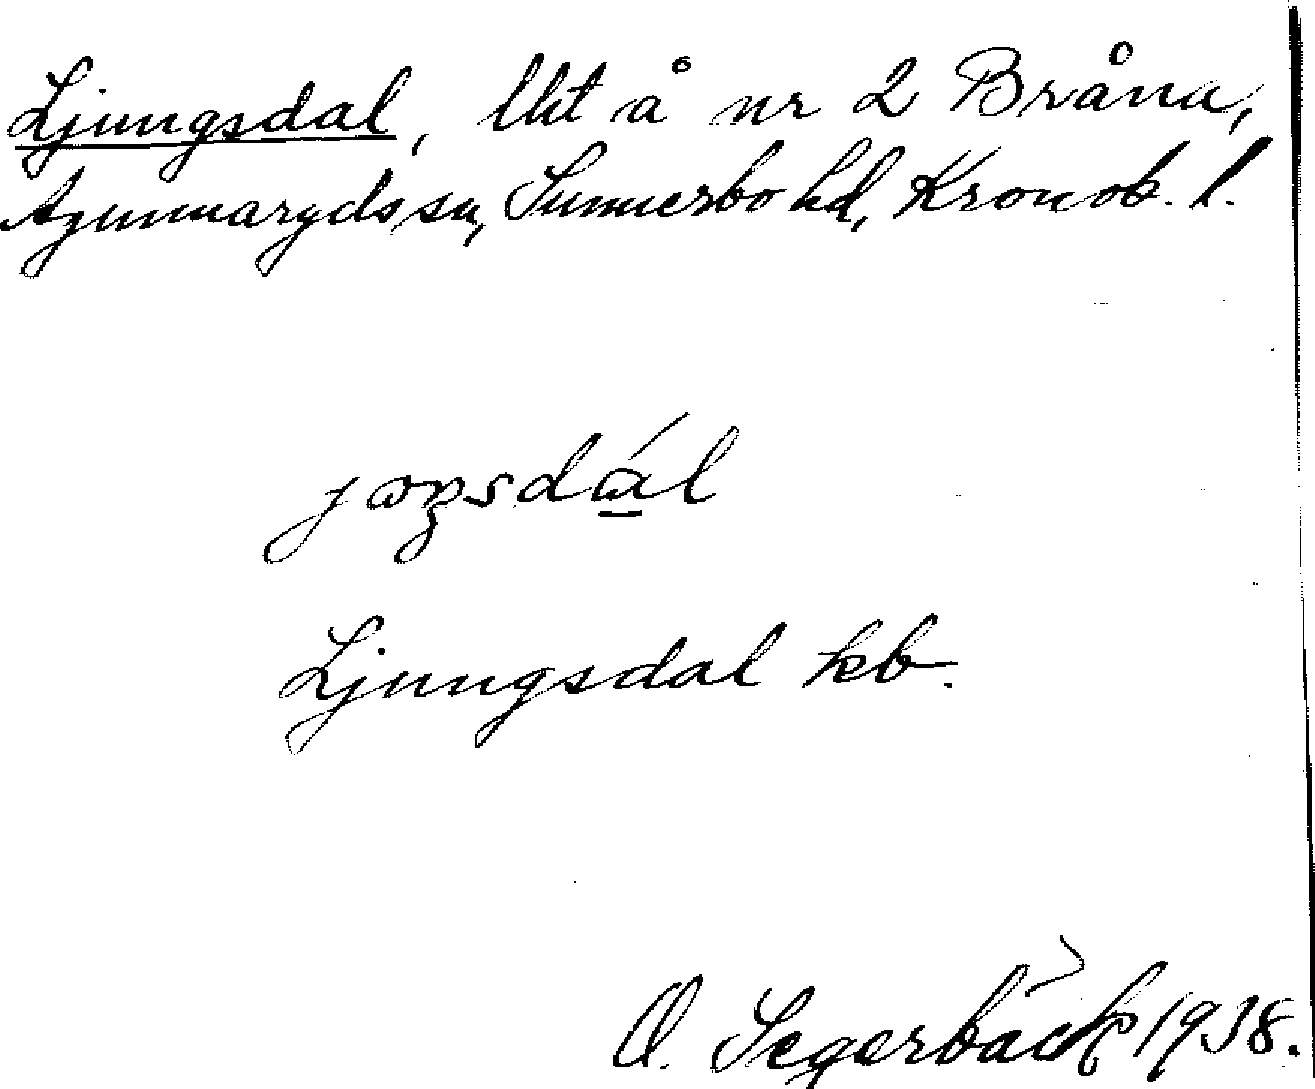 Ljungsdal, lht å nr 2 Bråna,
Agunnaryds sn, Sunnerbo hd, Kronob. l.
joŋsdál
Ljungsdal kb.
O. Segerbäck 1938.